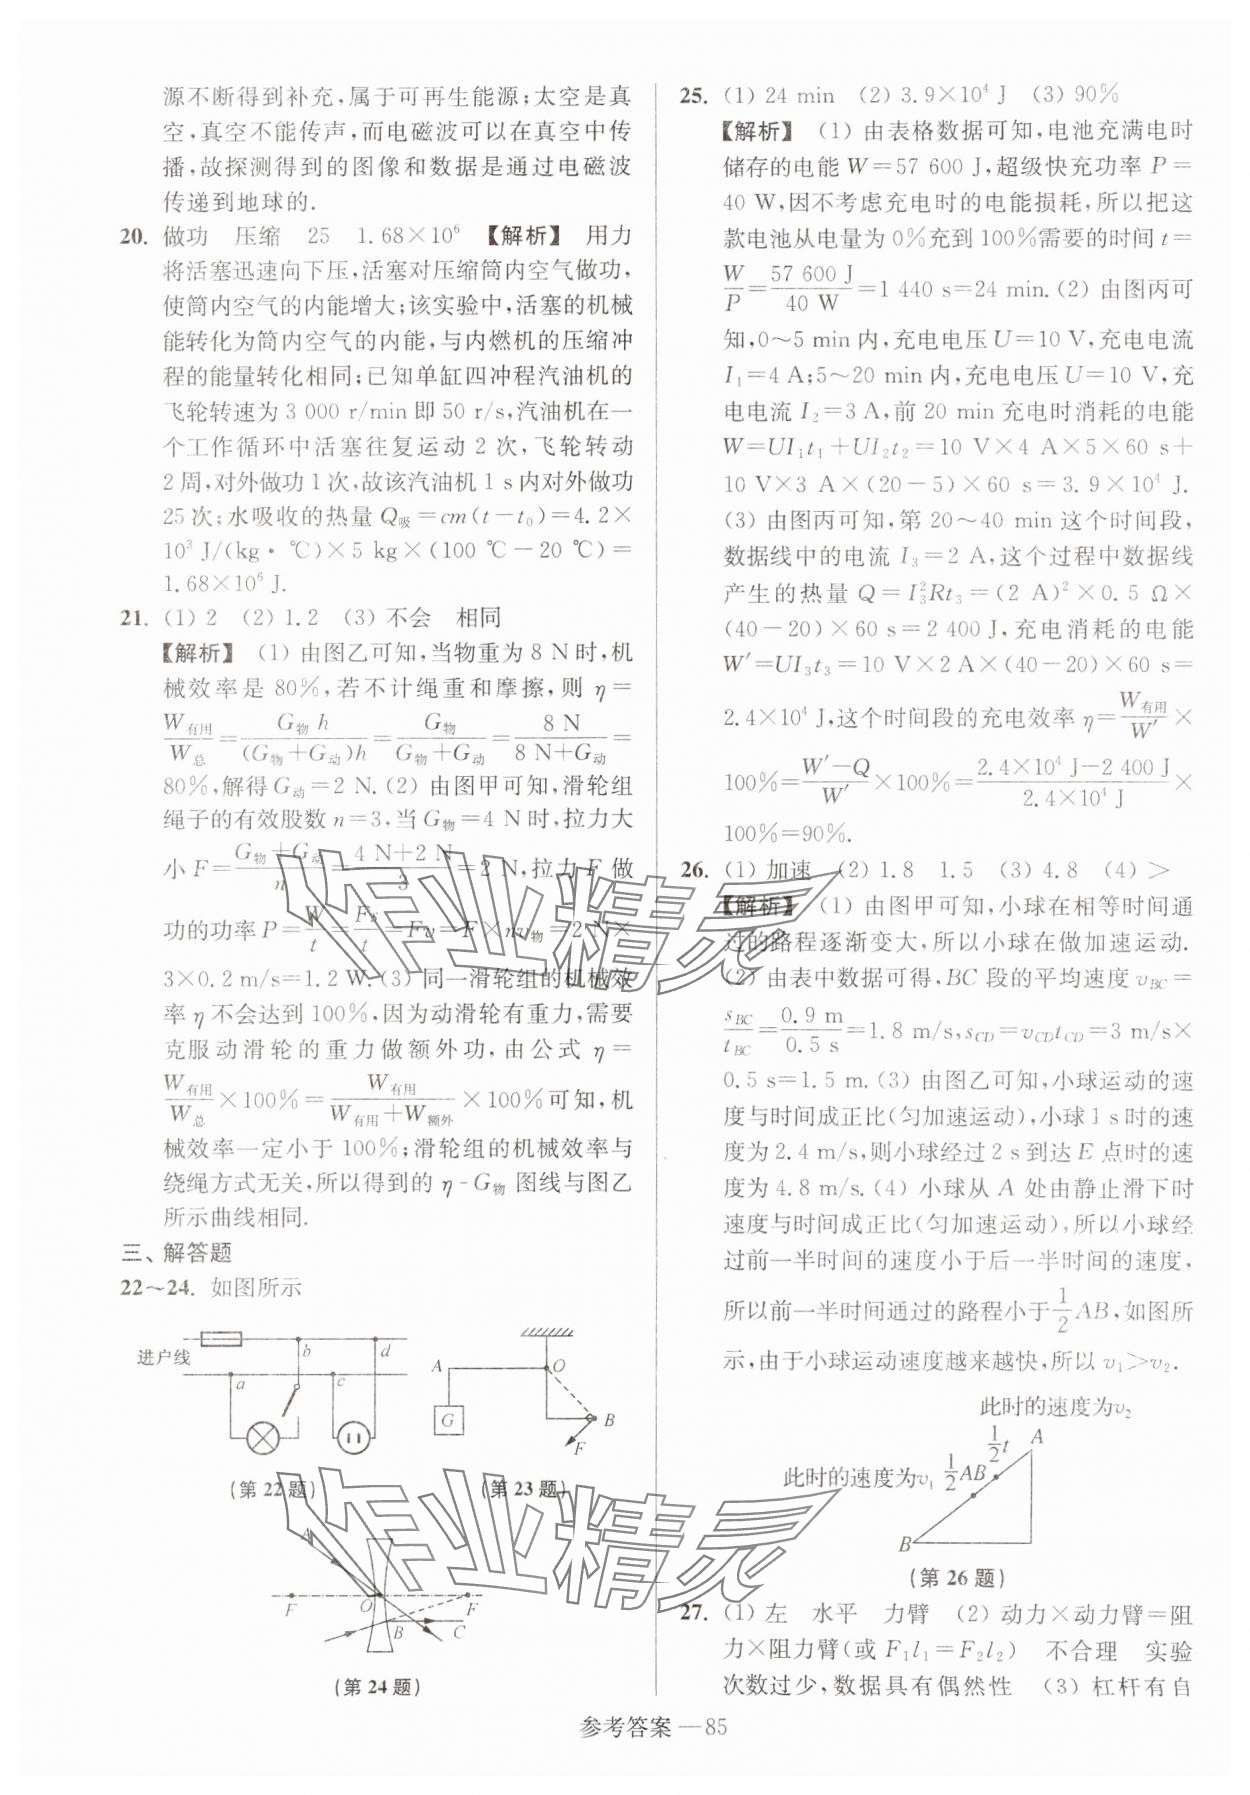 源不断得到补充,属于可再生能源;太空是真
空,真空不能传声,而电磁波可以在真空中传
播,故探测得到的图像和数据是通过电磁波
传递到地球的.
20. 做功 压缩 25 1.68×10⁶ 【解析】 用力
将活塞迅速向下压,活塞对压缩筒内空气做功,
使筒内空气的内能增大;该实验中,活塞的机械
能转化为筒内空气的内能,与内燃机的压缩冲
程的能量转化相同;已知单缸四冲程汽油机的
飞轮转速为 3 000 r/min 即 50 r/s,汽油机在一
个工作循环中活塞往复运动 2 次,飞轮转动
2 周,对外做功 1 次,故该汽油机 1 s 内对外做功
25 次;水吸收的热量 Q吸=cm(t-t₀)=4.2×
10³ J/(kg·℃)×5 kg×(100 ℃-20 ℃)=
1.68×10⁶ J.
21. (1) 2 (2) 1.2 (3) 不会 相同
【解析】 (1) 由图乙可知,当物重为 8 N 时,机
械效率是 80%,若不计绳重和摩擦,则 η=
W有用/W总=G物h/(G物+G动)h=G物/(G物+G动)=8 N/(8 N+G动)=
80%,解得 G动=2 N. (2) 由图甲可知,滑轮组
绳子的有效股数 n=3,当 G物=4 N 时,拉力大
小 F=(G物+G动)/n=(4 N+2 N)/3=2 N,拉力 F 做
功的功率 P=W/t=Fs/t=Fv=F×nv物=2 N×
3×0.2 m/s=1.2 W. (3) 同一滑轮组的机械效
率 η 不会达到 100%,因为动滑轮有重力,需要
克服动滑轮的重力做额外功,由公式 η=
W有用/W总×100%=W有用/(W有用+W额外)×100%可知,机
械效率一定小于 100%;滑轮组的机械效率与
绕绳方式无关,所以得到的 η-G物 图线与图乙
所示曲线相同.
三、解答题
22~24. 如图所示
进户线
b
d
a
c
(第 22 题)
A
O
G
B
F
(第 23 题)
A
F
O
F
B
C
(第 24 题)
25. (1) 24 min (2) 3.9×10⁴ J (3) 90%
【解析】 (1) 由表格数据可知,电池充满电时
储存的电能 W=57 600 J,超级快充功率 P=
40 W,因不考虑充电时的电能损耗,所以把这
款电池从电量为 0%充到 100%需要的时间 t=
W/P=57 600 J/40 W=1 440 s=24 min. (2) 由图丙可
知,0~5 min 内,充电电压 U=10 V,充电电流
I₁=4 A;5~20 min 内,充电电压 U=10 V,充
电电流 I₂=3 A,前 20 min 充电时消耗的电能
W=UI₁t₁+UI₂t₂=10 V×4 A×5×60 s+
10 V×3 A×(20-5)×60 s=3.9×10⁴ J.
(3) 由图丙可知,第 20~40 min 这个时间段,
数据线中的电流 I₃=2 A,这个过程中数据线
产生的热量 Q=I₃²Rt₃=(2 A)²×0.5 Ω×
(40-20)×60 s=2 400 J,充电消耗的电能
W′=UI₃t₃=10 V×2 A×(40-20)×60 s=
2.4×10⁴ J,这个时间段的充电效率 η=W有用/W′×
100%=(W′-Q)/W′×100%=(2.4×10⁴ J-2 400 J)/(2.4×10⁴ J)×
100%=90%.
26. (1) 加速 (2) 1.8 1.5 (3) 4.8 (4) >
【解析】 (1) 由图甲可知,小球在相等时间通
过的路程逐渐变大,所以小球在做加速运动.
(2) 由表中数据可得,BC 段的平均速度 vBC=
sBC/tBC=0.9 m/0.5 s=1.8 m/s,sCD=vCDtCD=3 m/s×
0.5 s=1.5 m. (3) 由图乙可知,小球运动的速
度与时间成正比(匀加速运动),小球 1 s 时的速
度为 2.4 m/s,则小球经过 2 s 到达 E 点时的速
度为 4.8 m/s. (4) 小球从 A 处由静止滑下时
速度与时间成正比(匀加速运动),所以小球经
过前一半时间的速度小于后一半时间的速度,
所以前一半时间通过的路程小于1/2AB,如图所
示,由于小球运动速度越来越快,所以 v₁>v₂.
此时的速度为v₂
1/2t
A
此时的速度为v₁ 1/2AB
B
(第 26 题)
27. (1) 左 水平 力臂 (2) 动力×动力臂=阻
力×阻力臂(或 F₁l₁=F₂l₂) 不合理 实验
次数过少,数据具有偶然性 (3) 杠杆有自
参考答案 —85
作业精灵
作业精灵